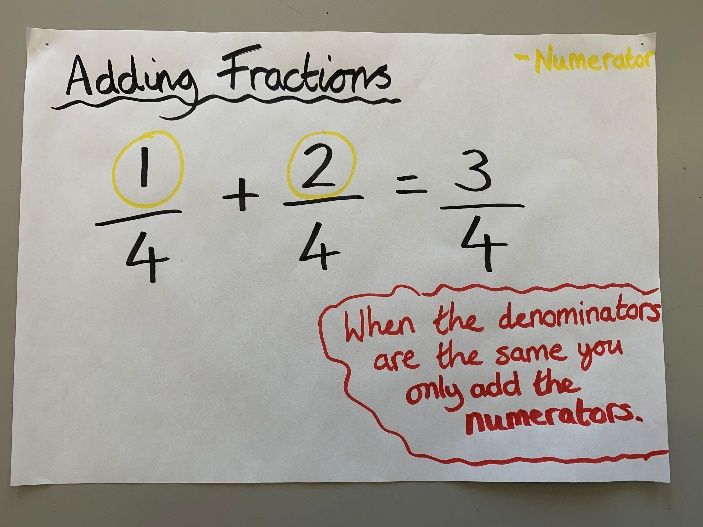 Adding Fractions
- Numerator
1/4 + 2/4 = 3/4
When the denominators
are the same you
only add the
numerators.